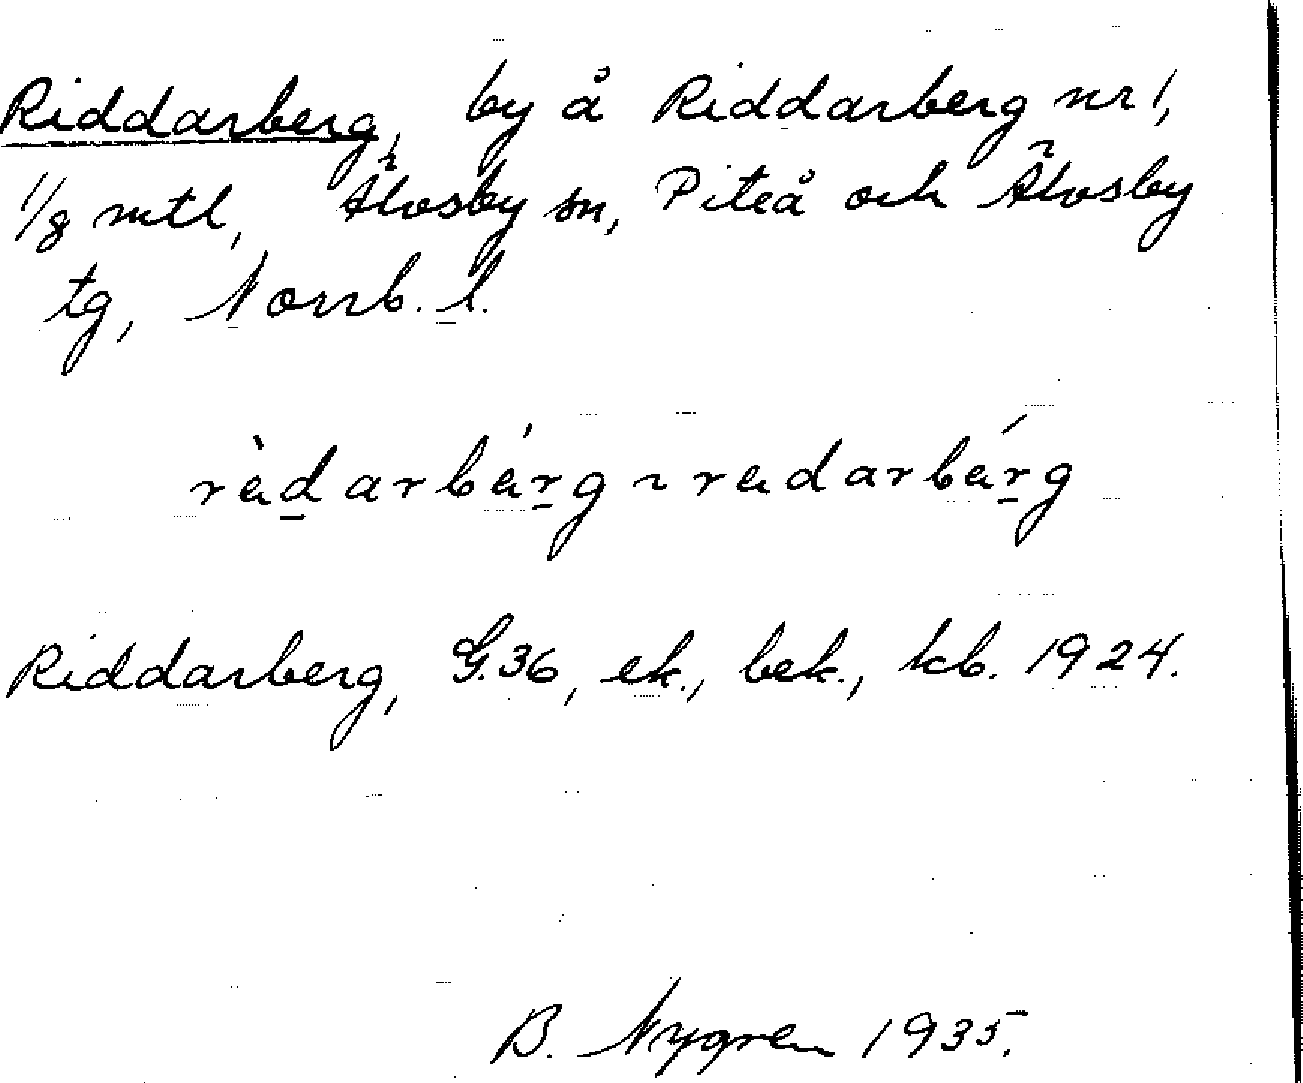 Riddarberg, by å Riddarberg nr 1,
1/8 mtl, Älvsby sn, Piteå och Älvsby
tg, Norrb. l.
rὰdarbάrg ~ radarbάrg
Riddarberg, G.36, ek., bek., kb. 1924.
B. Nygren 1935.